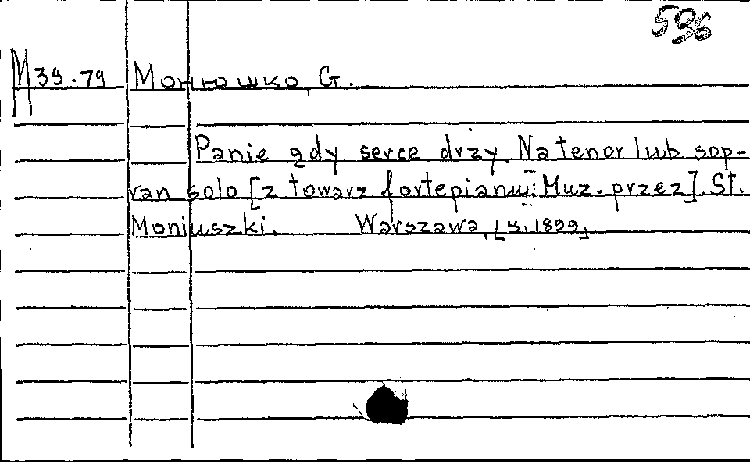 596
М 39-79 Монюшко, G.
Panie gdy serce drży. Na tenor lub sop-
ran solo [z towarz fortepianu: Muz. przez]. St.
Moniuszki. Warszawa, 1899